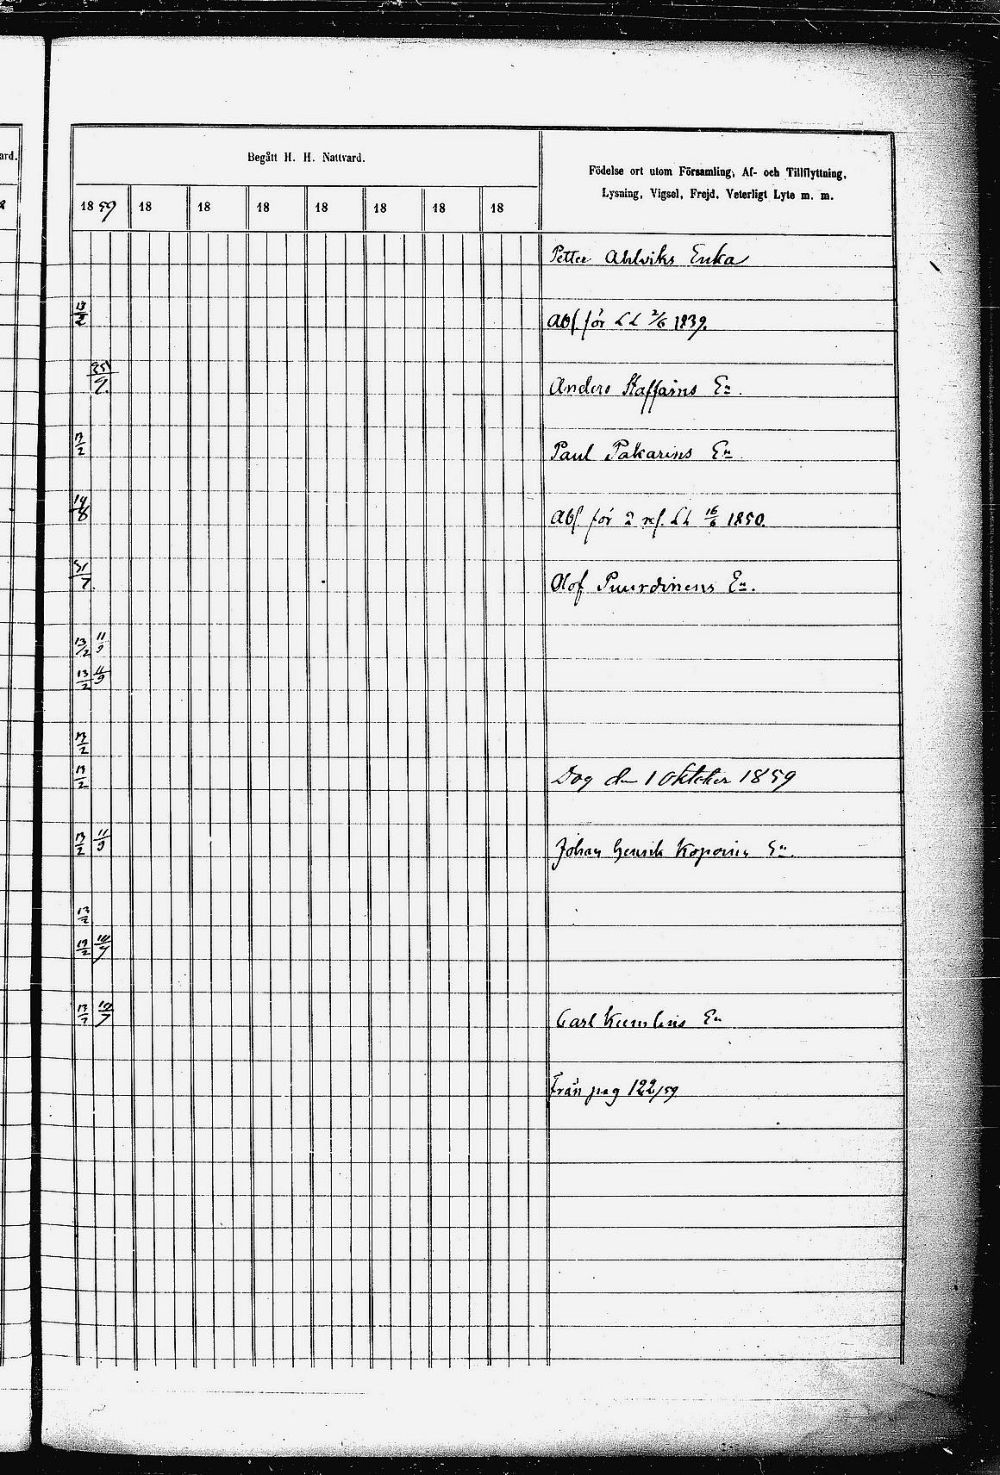 ard.
Begått H. H. Nattvard.
Födelse ort utom Församling, Af- och Tillflyttning,
Lysning, Vigsel, Frejd, Veterligt Lyte m. m.
18 59 18 18 18 18 18 18 18
Petter Ahlviks Enka
13/2 Abs. för LL 2/6 1839.
25/9 Anders Staffarins En.
13/2 Paul Pakarins En
14/8 Abs för 2 LL 16/6 1850.
31/7 Olof En.
13/2 11/9
13/2 11/9
13/2
13/2 Dog den 1 Oktober 1859
13/2 11/9 Johan Henrik En.
13/2
13/2 10/7
13/2 10/7 Carl En
Från pag 122/59